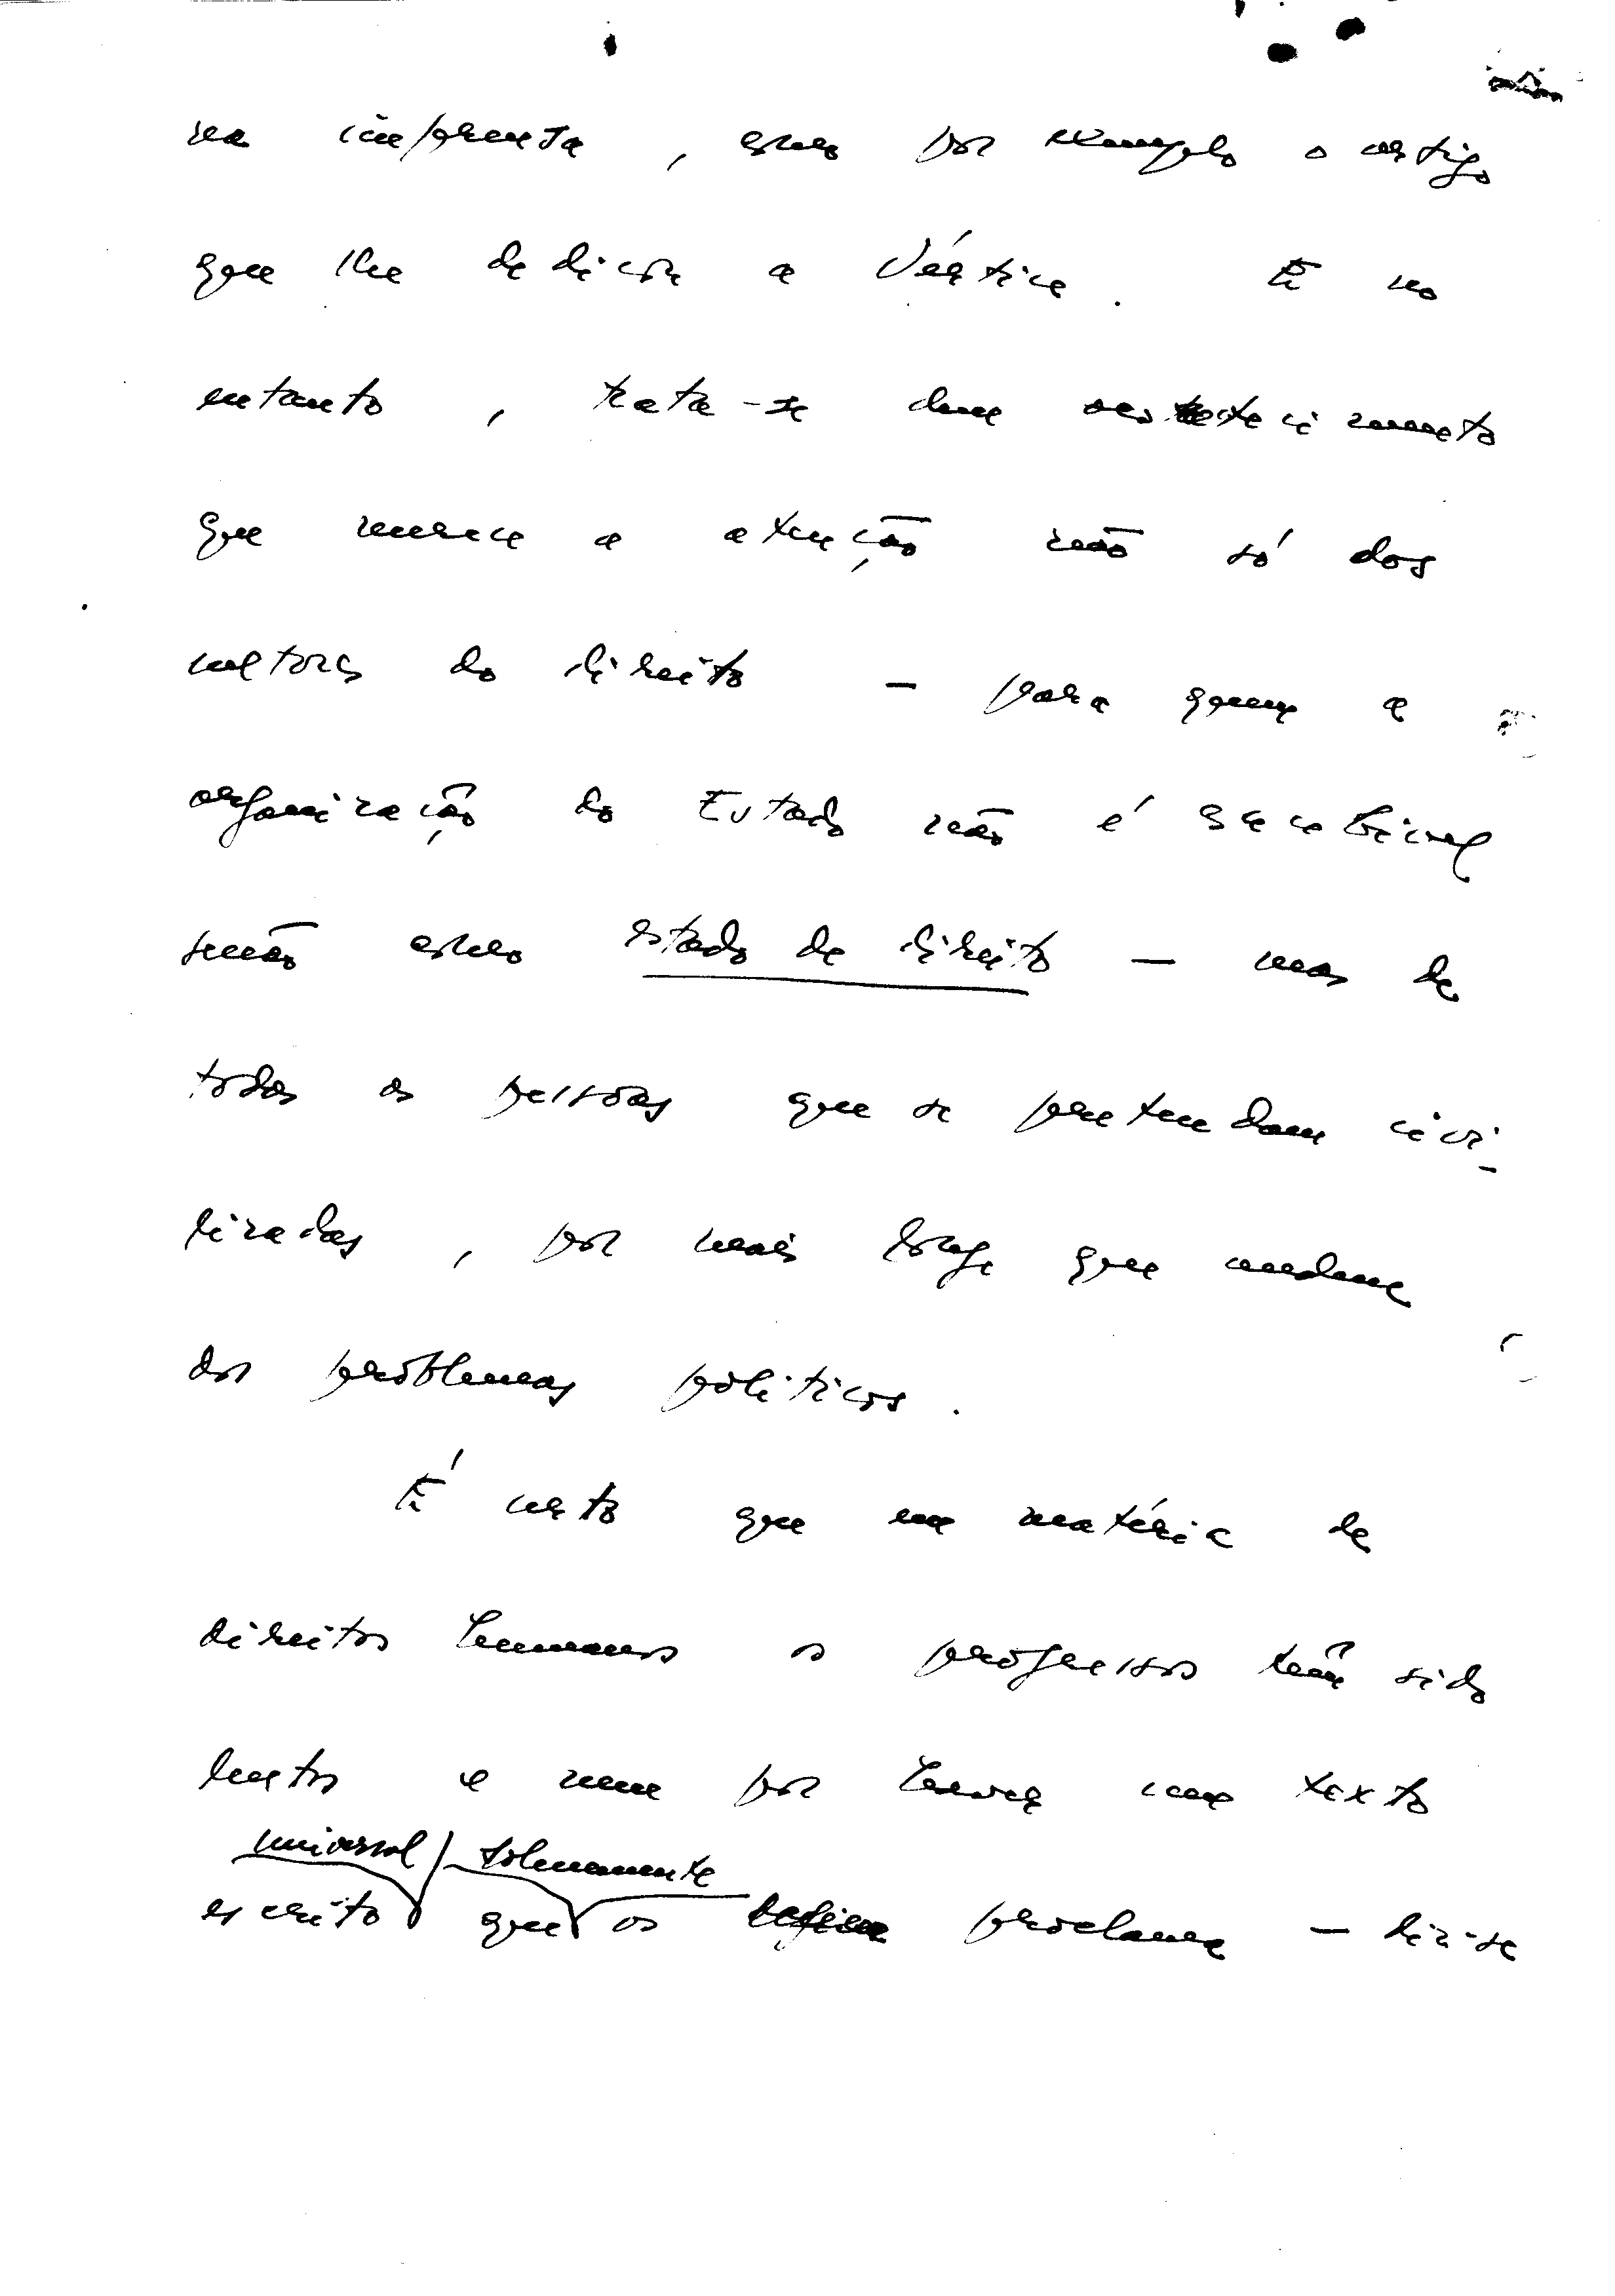 na imprensa, como por exemplo o artigo
que lhe dedicou a Vértice. E no
entanto, trata-se dum acontecimento
que merece a atenção não só dos
cultores do direito – para quem a
organização do Estado não é concebível
senão como estado de direito – mas de
todas as pessoas que se pretendam civi-
lizadas, por mais longe que andem
dos problemas políticos.
É certo que em matéria de
direitos humanos os progressos têm sido
lentos e nem por haver um texto
universal / solenemente
escrito que os define proclama – diz-se